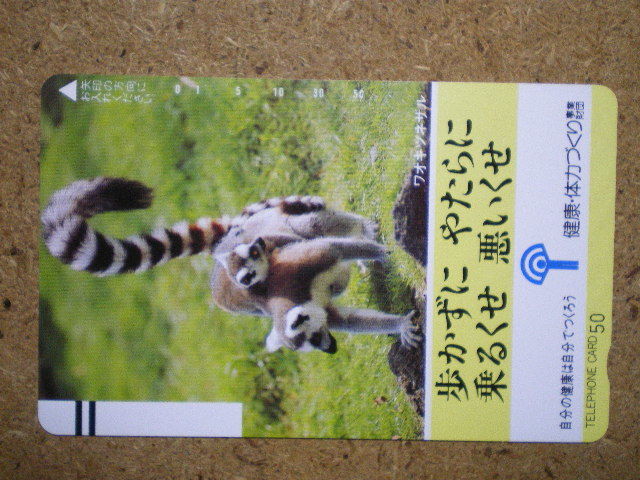 矢印の方向に
お入れください
0 1 5 10 30 50
ワオキツネザル
歩かずに やたらに
乗るくせ 悪いくせ
自分の健康は自分でつくろう
健康・体力づくり事業財団
TELEPHONE CARD 50